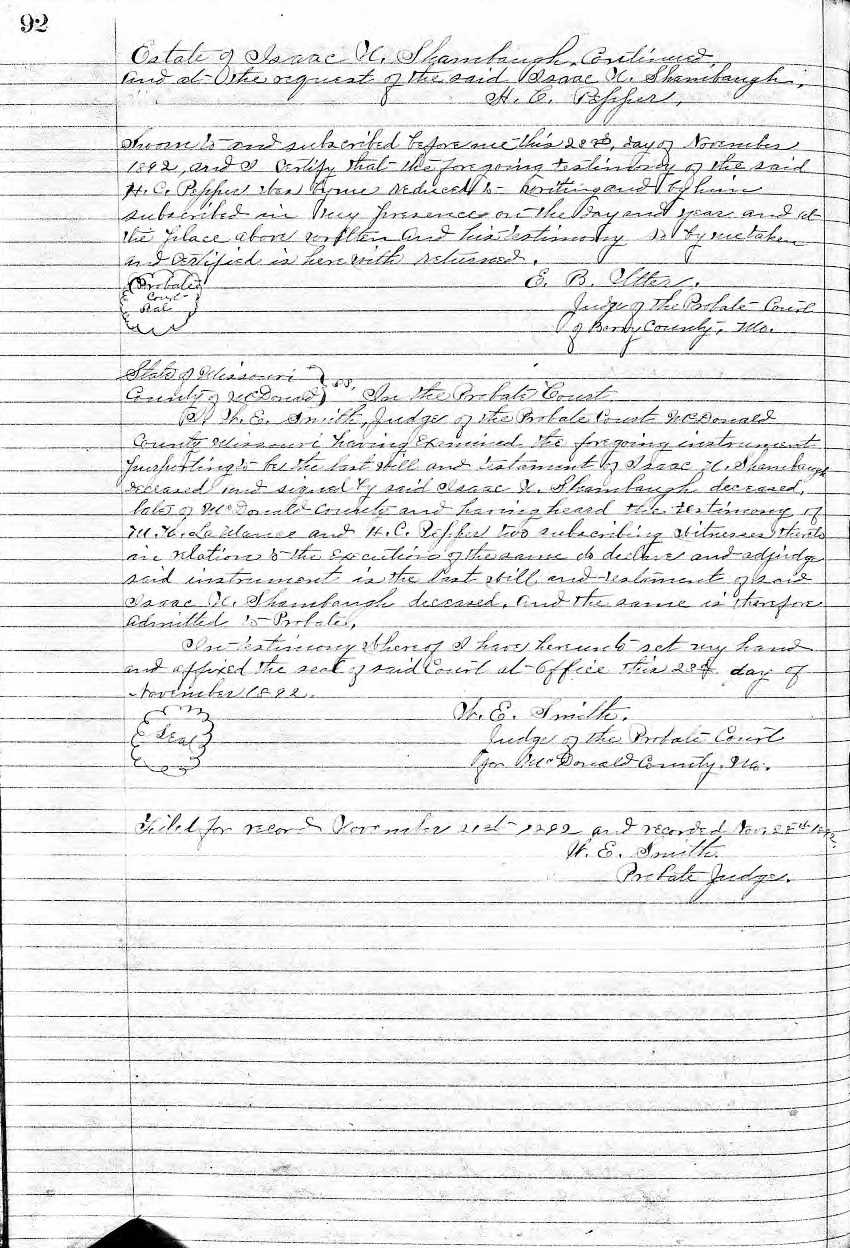 92
Estate of Isaac N. Shambaugh, Continued.
and at the request of the said Isaac N. Shambaugh,
H. C. Pepper,
Sworn to and subscribed before me this day of November
1892, and I certify that the foregoing testimony of the said
H. C. Pepper was by me reduced to writing and by him
subscribed in my presence on the day and year and at
the place above written and his testimony so by me taken
and certified is herewith returned.
Probate
Court
Seal
E. B. Utter.
Judge of the Probate Court
of Barry County, Mo.
State of Missouri
County of McDonald } ss. In the Probate Court
I W. E. Smith, Judge of the Probate Court McDonald
County Missouri having examined the foregoing instrument
purporting to be the last Will and testament of Isaac N. Shambaugh
deceased and signed by said Isaac N. Shambaugh deceased,
late of McDonald County and having heard the testimony of
M. N. LaMance and H. C. Pepper two subscribing witnesses thereto
in relation to the execution of the same do declare and adjudge
said instrument is the last Will and testament of said
Isaac N. Shambaugh deceased, and the same is therefore
admitted to Probate,
In testimony Whereof I have hereunto set my hand
and affixed the seal of said Court at Office this 28th day of
November 1892.
Seal
W. E. Smith.
Judge of the Probate Court
for McDonald County, Mo.
Filed for record November 21st 1892 and recorded Nov. 28th 1892.
W. E. Smith.
Probate Judge.